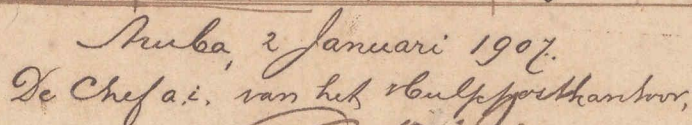 Aruba, 2 Januari 1907.
De Chef a.i. van het Hulppostkantoor,